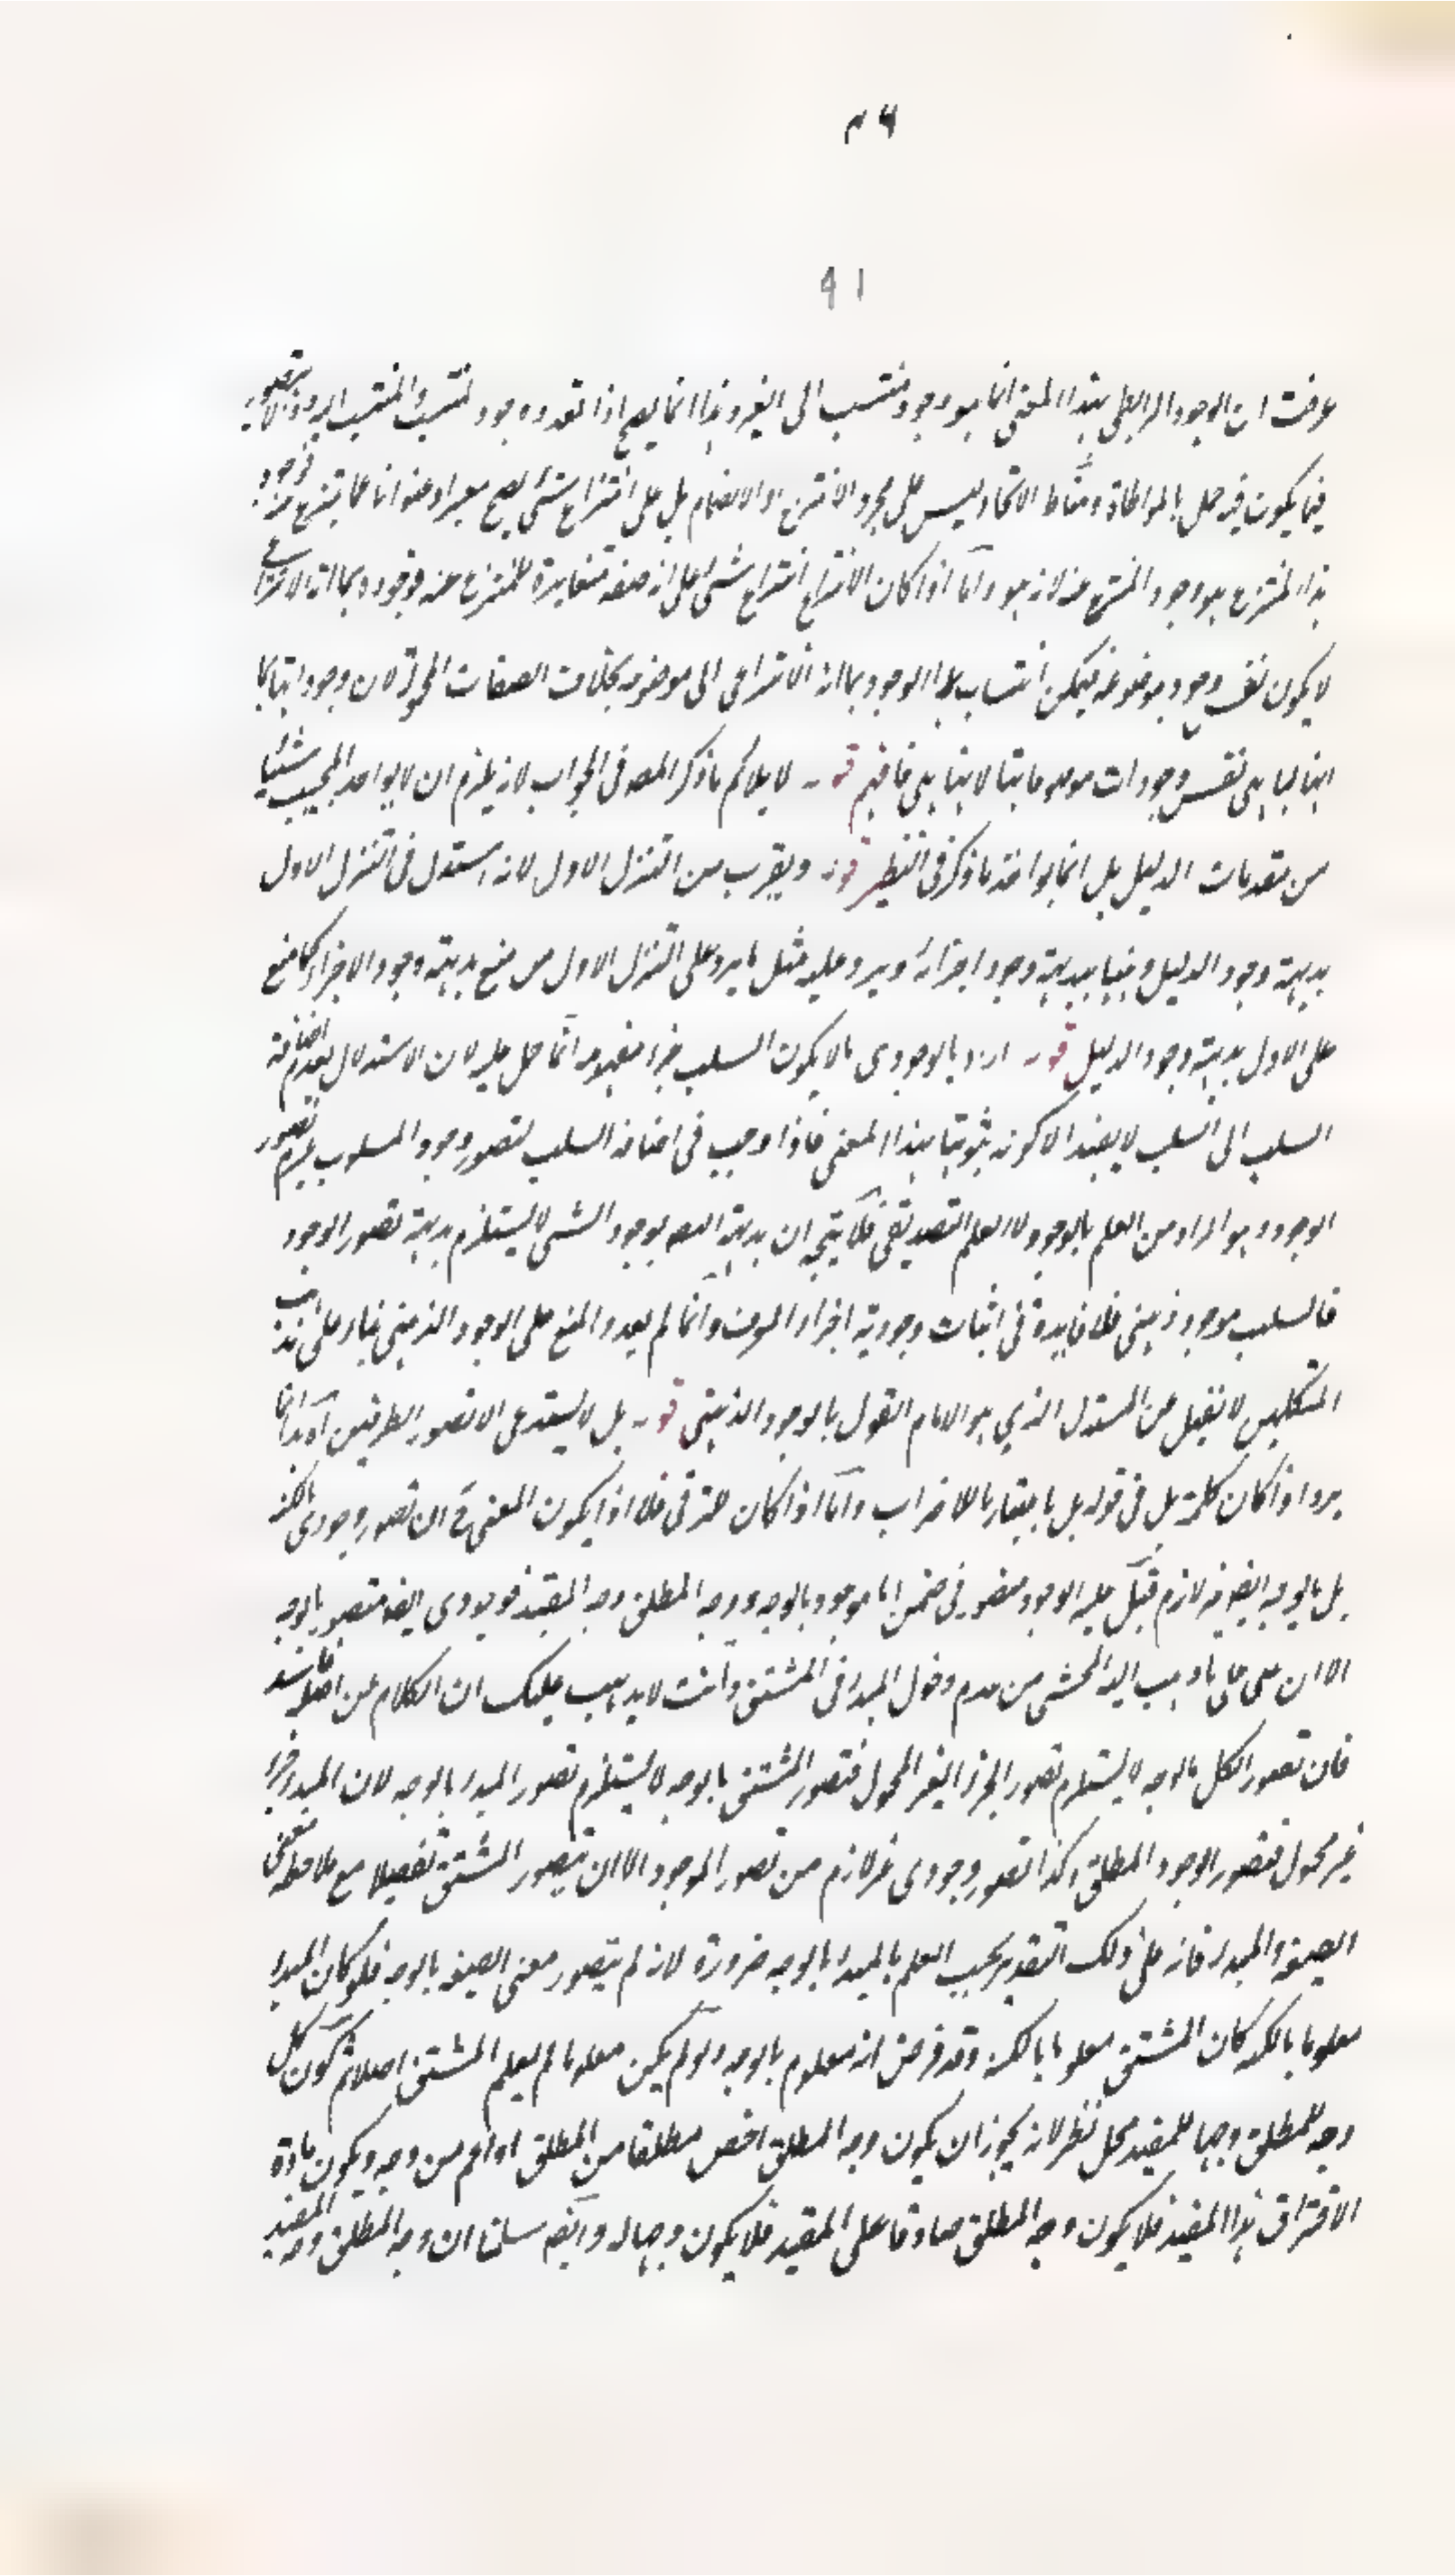 ٤٦
٩١
عرفت ان الوجود الرابطى بهذا المعنى انما هو وجود منتسب الى الغير وهذا انما يصح اذا تعدد وجود المنتسب والمنتسب اليه ولا يتصور
فيما يكون فيه حمل بالمواطاة ومناط الاتحاد ليس على مجرد الانتزاع والانضمام بل على انتزاع شئ يصح معبرا وعنوانا عما ينتزع منه فوجود
هذا المنتزع هو وجود المنتزع عنه لانه هو واما اذا كان الانتزاع انتزاع شئ على انه صفة متغايرة للمنتزع عنه فوجوده بما انه الانتزاعى
لا يكون نفس وجود موضوعه فيمكن انتساب هذا الوجود بما انه الانتزاعى الى موضوعه بخلاف الصفات المحمولة لان وجوداتها بما
انها لها هى نفس وجودات موصوفاتها لا بما هى فافهم قوله لا يلائم ما ذكر المصه فى الجواب لانه يلزم ان لا يواخذ المجيب شيئا
من مقدمات الدليل بل انما يواخذ ما ذكر فى التنظير قوله ويقرب من التنزل الاول لانه استدل فى التنزل الاول
بديهة وجود الدليل وههنا ببديهة وجود اجزائه ويرد عليه مثل ما يرد على التنزل الاول من منع بديهة وجود الاجزاء كما منع
على الاول بديهة وجود الدليل قوله اراد بالوجودى ما لا يكون السلب جزء مفهومه انما حمل عليه لان الاستدلال بعدم اضافة
السلب الى السلب لا يفيد الا كونه ثبوتيا بهذا المعنى فاذا وجب فى اضافة السلب تصور وجود المسلوب يلزم تصور
الوجود وهو المراد من العلم بالوجود لا العلم التصديقى فلا يتجه ان بديهة التصه بوجود الشئ لا يستلزم بديهة تصور الوجود
فالسلب موجود ذهنى فلا فايدة فى اثبات وجودية اجزاء المعرف وانما لم يورد المنع على الوجود الذهنى بناء على ان مذهب
المتكلمين لا يقبل من المستدل الذي هو الامام القول بالوجود الذهنى قوله بل لا يستدعى الا تصور الطرفين اه هذا انما
يرد اذا كان كلمة بل فى قوله بل باعتبار ما للاضراب واما اذا كان للترقى فلا اذ يكون المعنى ح ان تصور وجودى بالكنه
بل بالوجه ايضا غير لازم قيل عليه الوجود متصور فى ضمن انا موجود بالوجه ووجه المطلق وجه المقيد فوجودى ايضا متصور بالوجه
الا ان مبنى على ما ذهب اليه المحشى من عدم دخول المبدأ فى المشتق وانت لا يذهب عليك ان الكلام عن اصله فاسد
فان تصور الكل بالوجه لا يستلزم تصور الجزء الغير المحمول فتصور المشتق بالوجه لا يستلزم تصور المبدأ بالوجه لان المبدأ جزء
غير محمول فتصور الوجود المطلق وكذا تصور وجودى غير لازم من تصور الموجود الا ان يتصور المشتق تفصيلا مع ملاحظة معنى
الصيغة والمبدأ فانه على ذلك التقدير يجب العلم بالمبدأ بالوجه ضرورة لانه لم يتصور معنى الصيغة بالوجه فلو كان المبدأ
معلوما بالكنه كان المشتق معلوما بالكنه وقد فرض انه معلوم بالوجه ولو لم يكن معلوما لم يعلم المشتق اصلا ثم كون كل
وجه للمطلق وجها للمقيد محل نظر لانه يجوز ان يكون وجه المطلق اخص مطلقا من المطلق او اعم من وجه ويكون مادة
الافتراق هذا المقيد فلا يكون وجه المطلق صادقا على المقيد فلا يكون وجها له وايضا سلمنا ان وجه المطلق وجه المقيد